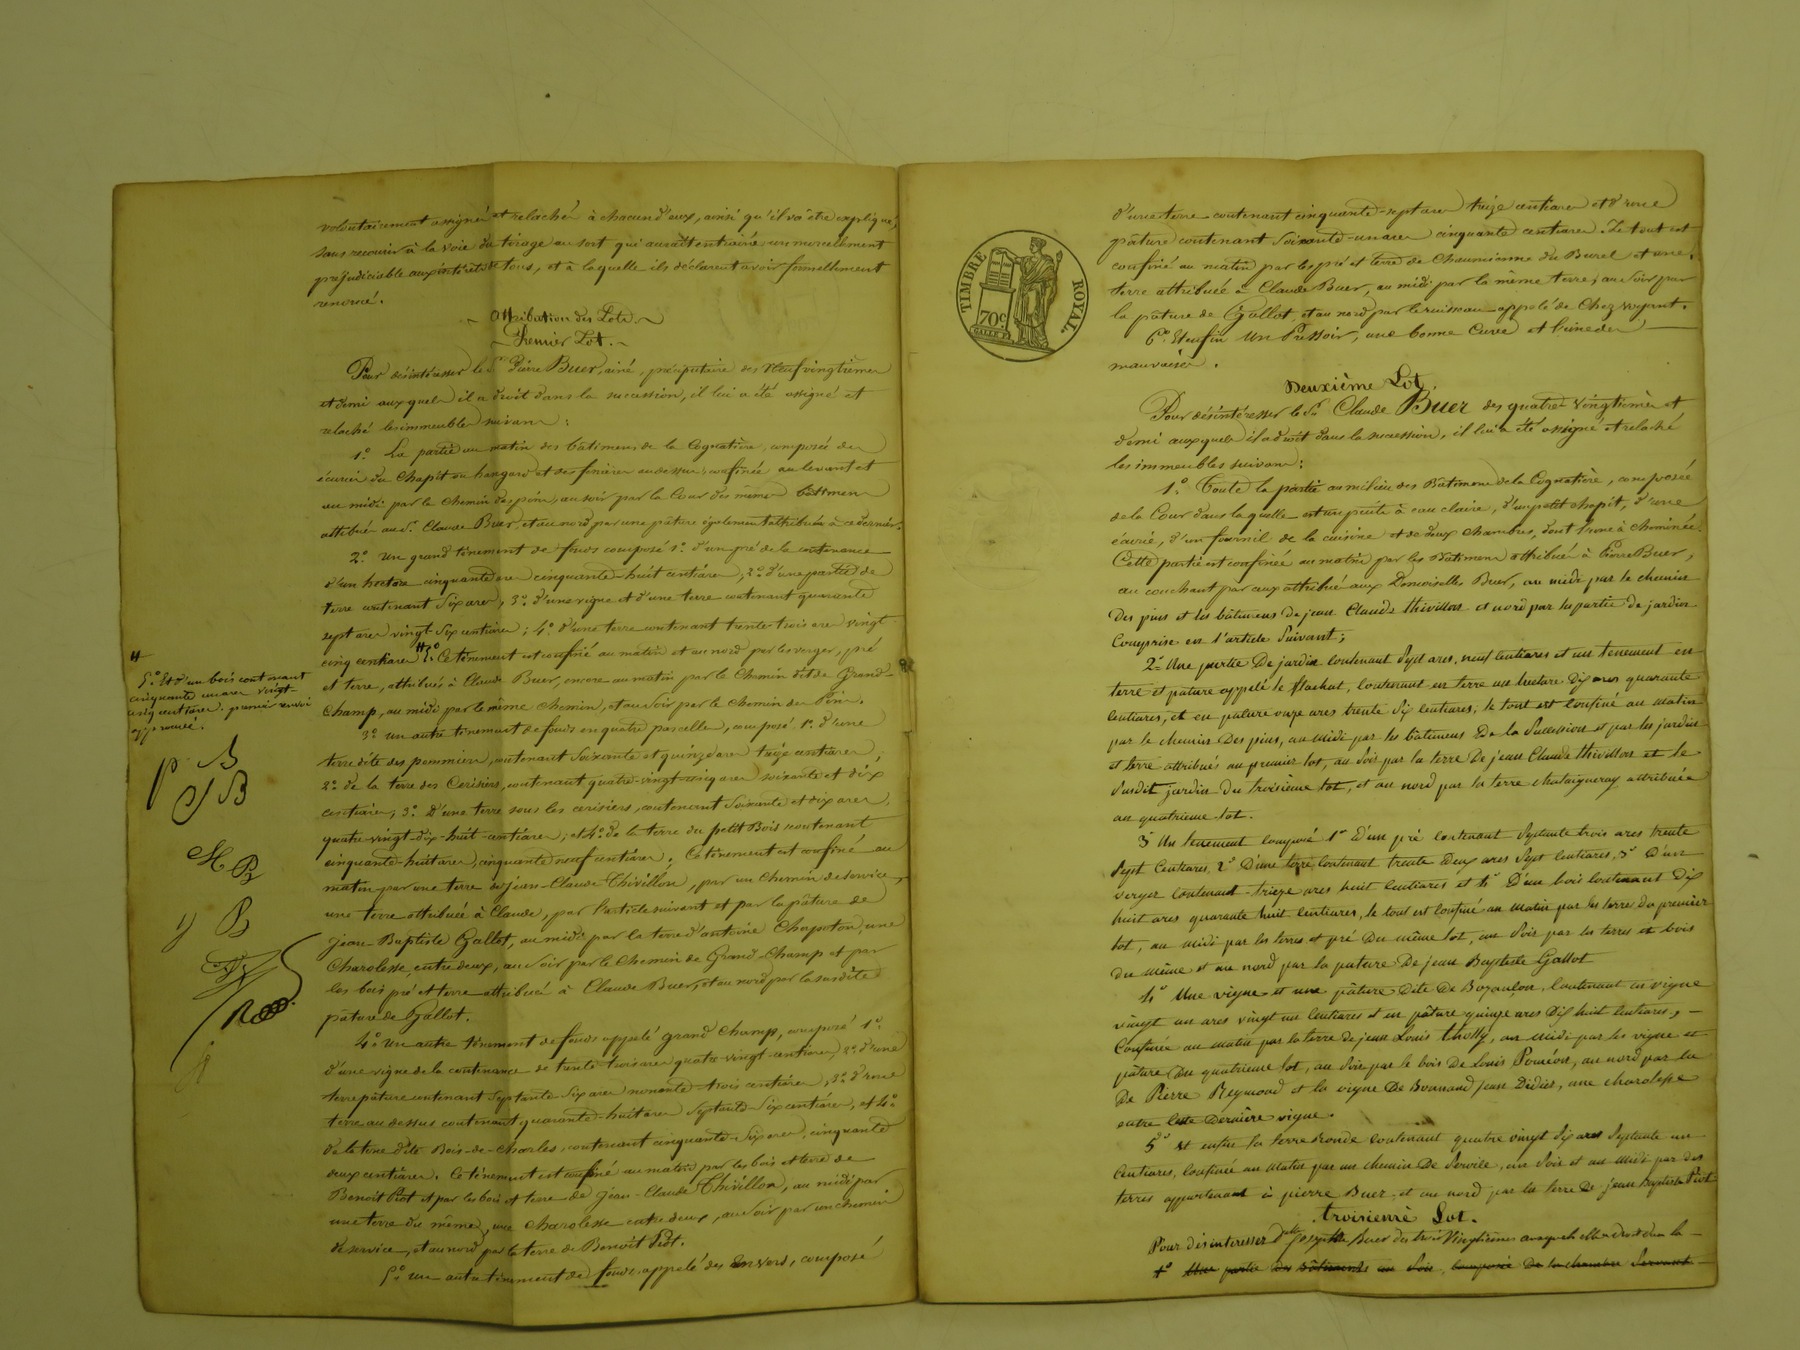 volontairement assigné et relaché à chacun d'eux, ainsi qu'il va être expliqué,
sans recourir à la voie du tirage au sort qui aurait entrainé un morcellement
préjudiciable aux intérêts de tous, et à laquelle ils déclarent avoir formellement
renoncé.
Attribution des Lots.
Premier Lot.
Pour désintéresser le Sr. Pierre Buer, ainé, préciputaire des neuf vingtièmes
et demi auxquels il a droit dans la succession, il lui a été assigné et
relaché les immeubles suivans :
1o. La partie au matin des bâtimens de la Cognatière, composée des
écuries du Chapit ou hangard et des fenières au dessus, confinée au levant et
au midi par le chemin des pins, au soir par la Cour des mêmes bâtimens
attribué au Sr. Claude Buer, et au nord par une pâture également attribuée à ce dernier.
2o. Un grand ténement de fonds composé 1o. d'un pré de la contenance
d'un hectare cinquante ares cinquante-huit centiares, 2o. d'une partie de
terre contenant six ares, 3o. d'une vigne et d'une terre contenant quarante
sept ares vingt-six centiares ; 4o. d'une terre contenant trente-trois ares vingt
cinq centiares # Ce ténement est confiné au matin et au nord par les verger, pré
et terre, attribués à Claude Buer, encore au matin par le Chemin dit de Grand-
Champ, au midi par le même chemin, et au soir par le chemin des Pins.
3o. un autre ténement de fonds en quatre parcelles, composé 1o. d'une
terre dite des pommiers, contenant soixante et quinze ares treize centiares ;
2o. de la terre des Cerisiers, contenant quatre-vingt-cinq ares soixante et dix
centiares, 3o. D'une terre sous les cerisiers, contenant soixante et dix ares,
quatre-vingt-dix-huit-centiares ; et 4o. de la terre du petit Bois contenant
cinquante-huit ares, cinquante neuf centiares. Ce ténement est confiné au
matin par une terre de jean-Claude Thivillon, par un chemin de service,
une terre attribuée à Claude, par l'article suivant et par la pâture de
jean Baptiste Gallot, au midi par la terre d'antoine Chaputon, une
Charolesse entre deux, au soir par le Chemin de Grand-Champ et par
les bois pré et terre attribués à Claude Buer, et au nord par la susdite
pâture de Gallot.
4o. Un autre ténement de fonds appelé grand Champ, composé 1o.
d'une vigne de la contenance de trente trois ares quatre-vingt-centiares, 2o. d'une
terre pâture contenant septante six ares nonante-trois centiares, 3o. d'une
terre au dessus contenant quarante-huit ares septante-six centiares, et 4o.
de la terre dite Bois-de-Charles, contenant cinquante-six ares, cinquante
deux centiares. Ce ténement est confiné au matin par les bois et terre de
Benoit Piot et par les bois et terre de jean-Claude Thivillon, au midi par
une terre du même, une Charolesse entre deux, au soir par un chemin
de service, et au nord par la terre de Benoit Piot.
5o. un autre ténement de fonds appelé des Envers, composé
#
5o. Et d'un bois contenant
cinquante un ares vingt-
cinq centiares. premier renvoi
approuvé.
P B
CJ B
M B
J B
TIMBRE ROYAL.
70c
d'une terre contenant cinquante-sept ares treize centiares et d'une
pâture contenant soixante-un ares cinquante centiares. Le tout est
confiné au matin par les pré et terre de Chaumienne du Burel et une
terre attribuée à Claude Buer, au midi par la même terre, au soir par
la pâture de Gallot et au nord par le ruisseau appelé de Chez voyant.
6o. Et enfin Un Pressoir, une bonne Cuve et l'une des
mauvaises.
Deuxième Lot.
Pour désintéresser le Sr. Claude Buer des quatre vingtièmes et
demi auxquels il a droit dans la succession, il lui a été assigné et relaché
les immeubles suivans :
1o. Toute la partie au milieu des Bâtimens de la Cognatière, composée
de la Cour dans laquelle est un puits à eau claire, d'un petit chapit, d'une
écurie, d'un fournil de la cuisine et de deux chambres, dont l'une à cheminée.
Cette partie est confinée au matin par les Bâtimens attribués à Pierre Buer,
au couchant par ceux attribués aux Demoiselles Buer, au midi par le chemin
Des pins et les bâtimens De jean Claude thivillon et nord par la partie de jardin
Comprise en l'article Suivant ;
2o Une partie De jardin contenant Sept ares, neuf centiares et un tenement en
terre et pature appelé le flachat, contenant en terre un hectare dix ares quarante
centiares, et en pature onze ares trente Six centiares ; le tout est confiné au matin
par le chemin Des pins, au midi par les bâtimens De la Succession et par les jardin
et terre attribués au premier lot, au Soir par la terre De jean Claude thivillon et le
Susdit jardin du troisième lot, et au nord par la terre chataigneray attribuée
au quatrieme lot.
3o Un tenement composé 1o D'un pré contenant Septante trois ares trente
Sept Centiares, 2o D'une terre contenant trente deux ares Sept centiares, 3o D'un
verger contenant treize ares huit centiares et 4o D'un bois contenant Dix
huit ares quarante huit centiares, le tout est confiné au matin par les terre du premier
lot, au midi par les terres et pré Du même lot, au Soir par les terres et bois
du même et au nord par la pature De jean Baptiste Gallot
4o Une vigne et une pâture Dite De Bozaulon, contenant en vigne
vingt un ares vingt un centiares et en pâture quinze ares Dix huit centiares, —
Confinée au matin par la terre de jean Louis tholly, au midi par les vigne et
pâture Du quatrieme lot, au Soir par le bois De Louis Poméon, au nord par la
De Pierre Reymond et la vigne De Bonnand jean Didier, une charolesse
entre cette Dernière vigne.
5o Et enfin la terre Ronde contenant quatre vingt Six ares Septante un
Centiares, confinée au matin par un chemin De Service, au Soir et au midi par des
terres appartenant à pierre Buer, et au nord par la terre De jean Baptiste Piot
troisieme Lot.
Pour désinteresser Dlle josephte Buer des trois Vingtièmes auxquels elle a droit dans la —
1o Une partie des Bâtimens au Soir, composée De la chambre Servant